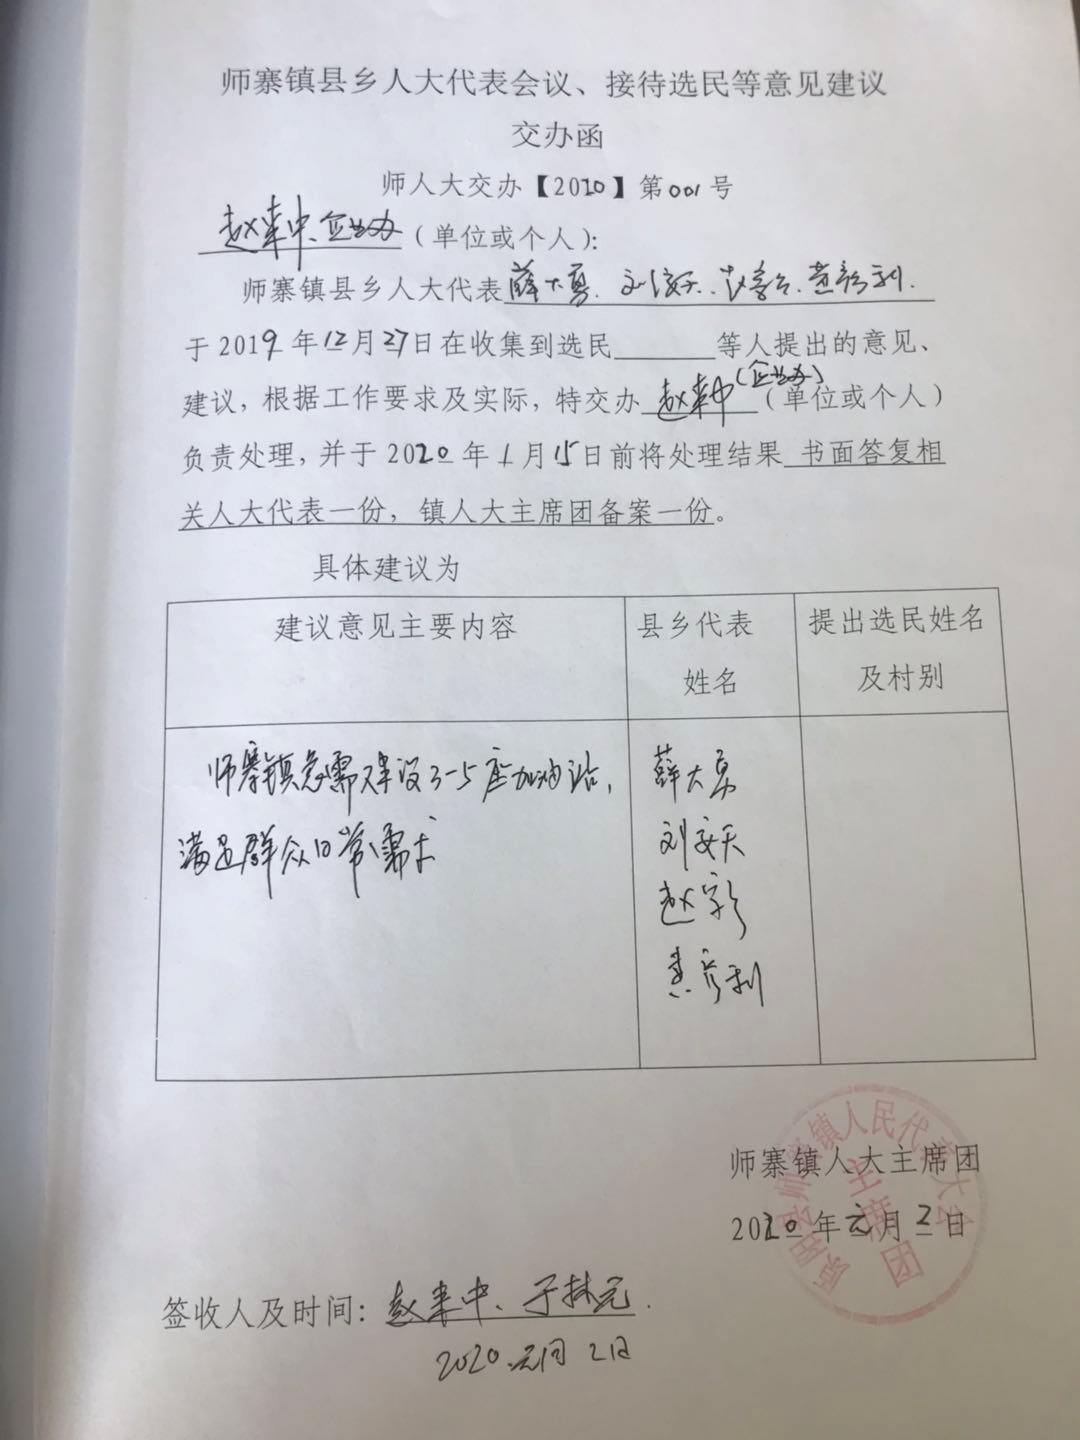 师寨镇县乡人大代表会议、接待选民等意见建议
交办函
师人大交办【2020】第001号
赵来中、企业办（单位或个人）：
师寨镇县乡人大代表薛大勇、刘安天、
于2019年12月27日在收集到选民______等人提出的意见、
（企业办）
建议，根据工作要求及实际，特交办 赵来中（单位或个人）
负责处理，并于2020年1月15日前将处理结果 书面答复相
关人大代表一份，镇人大主席团备案一份。
具体建议为
建议意见主要内容
县乡代表
姓名
提出选民姓名
及村别
师寨镇急需建设3-5座加油站，
满足群众日常需求
薛大勇
刘安天
师寨镇人大主席团
2020年元月2日
原阳县师寨镇人民代表大会
主席团
签收人及时间：赵来中、于林元.
2020.元月2日